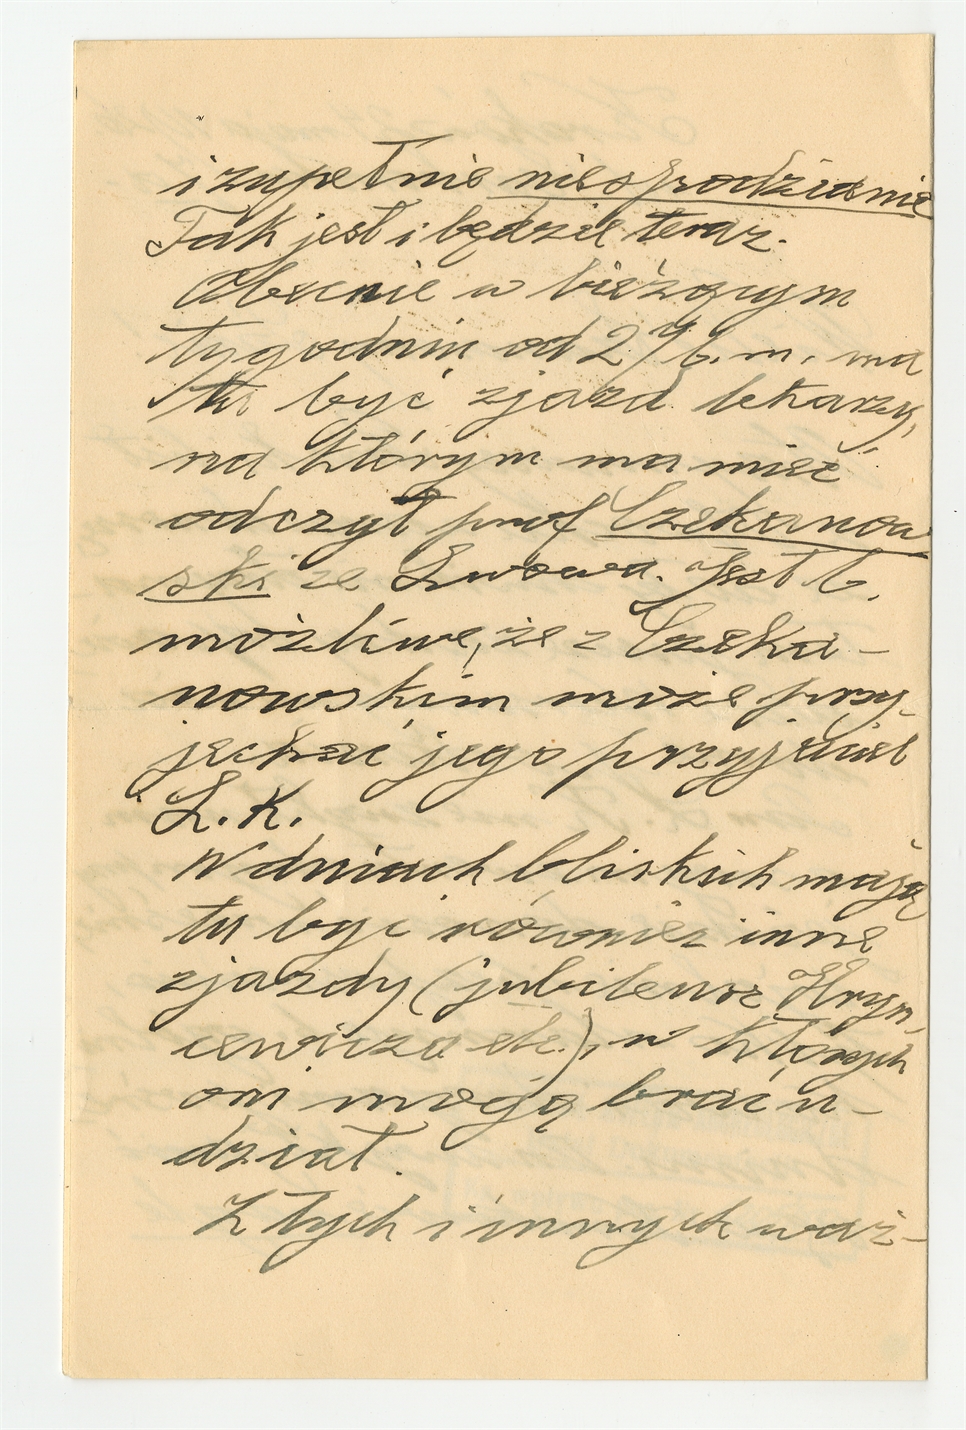 i zupełnie niespodzianie
Tak jest i będzie teraz.
Obecnie w bieżącym
tygodniu od 29 b.m. ma
tu być zjazd lekarzy,
na którym ma mieć
odczyt prof Czekanow
ski ze Lwowa. Jest b.
możliwe, że z Czeka-
nowskim może przy-
jechać jego przyjaciel
L. K.
W dniach bliskich mają
tu być również inne
zjazdy (jubileusz Hryn,
cewicza etc.), w których
oni mogą brać u-
dział.
Z tych i innych waż-